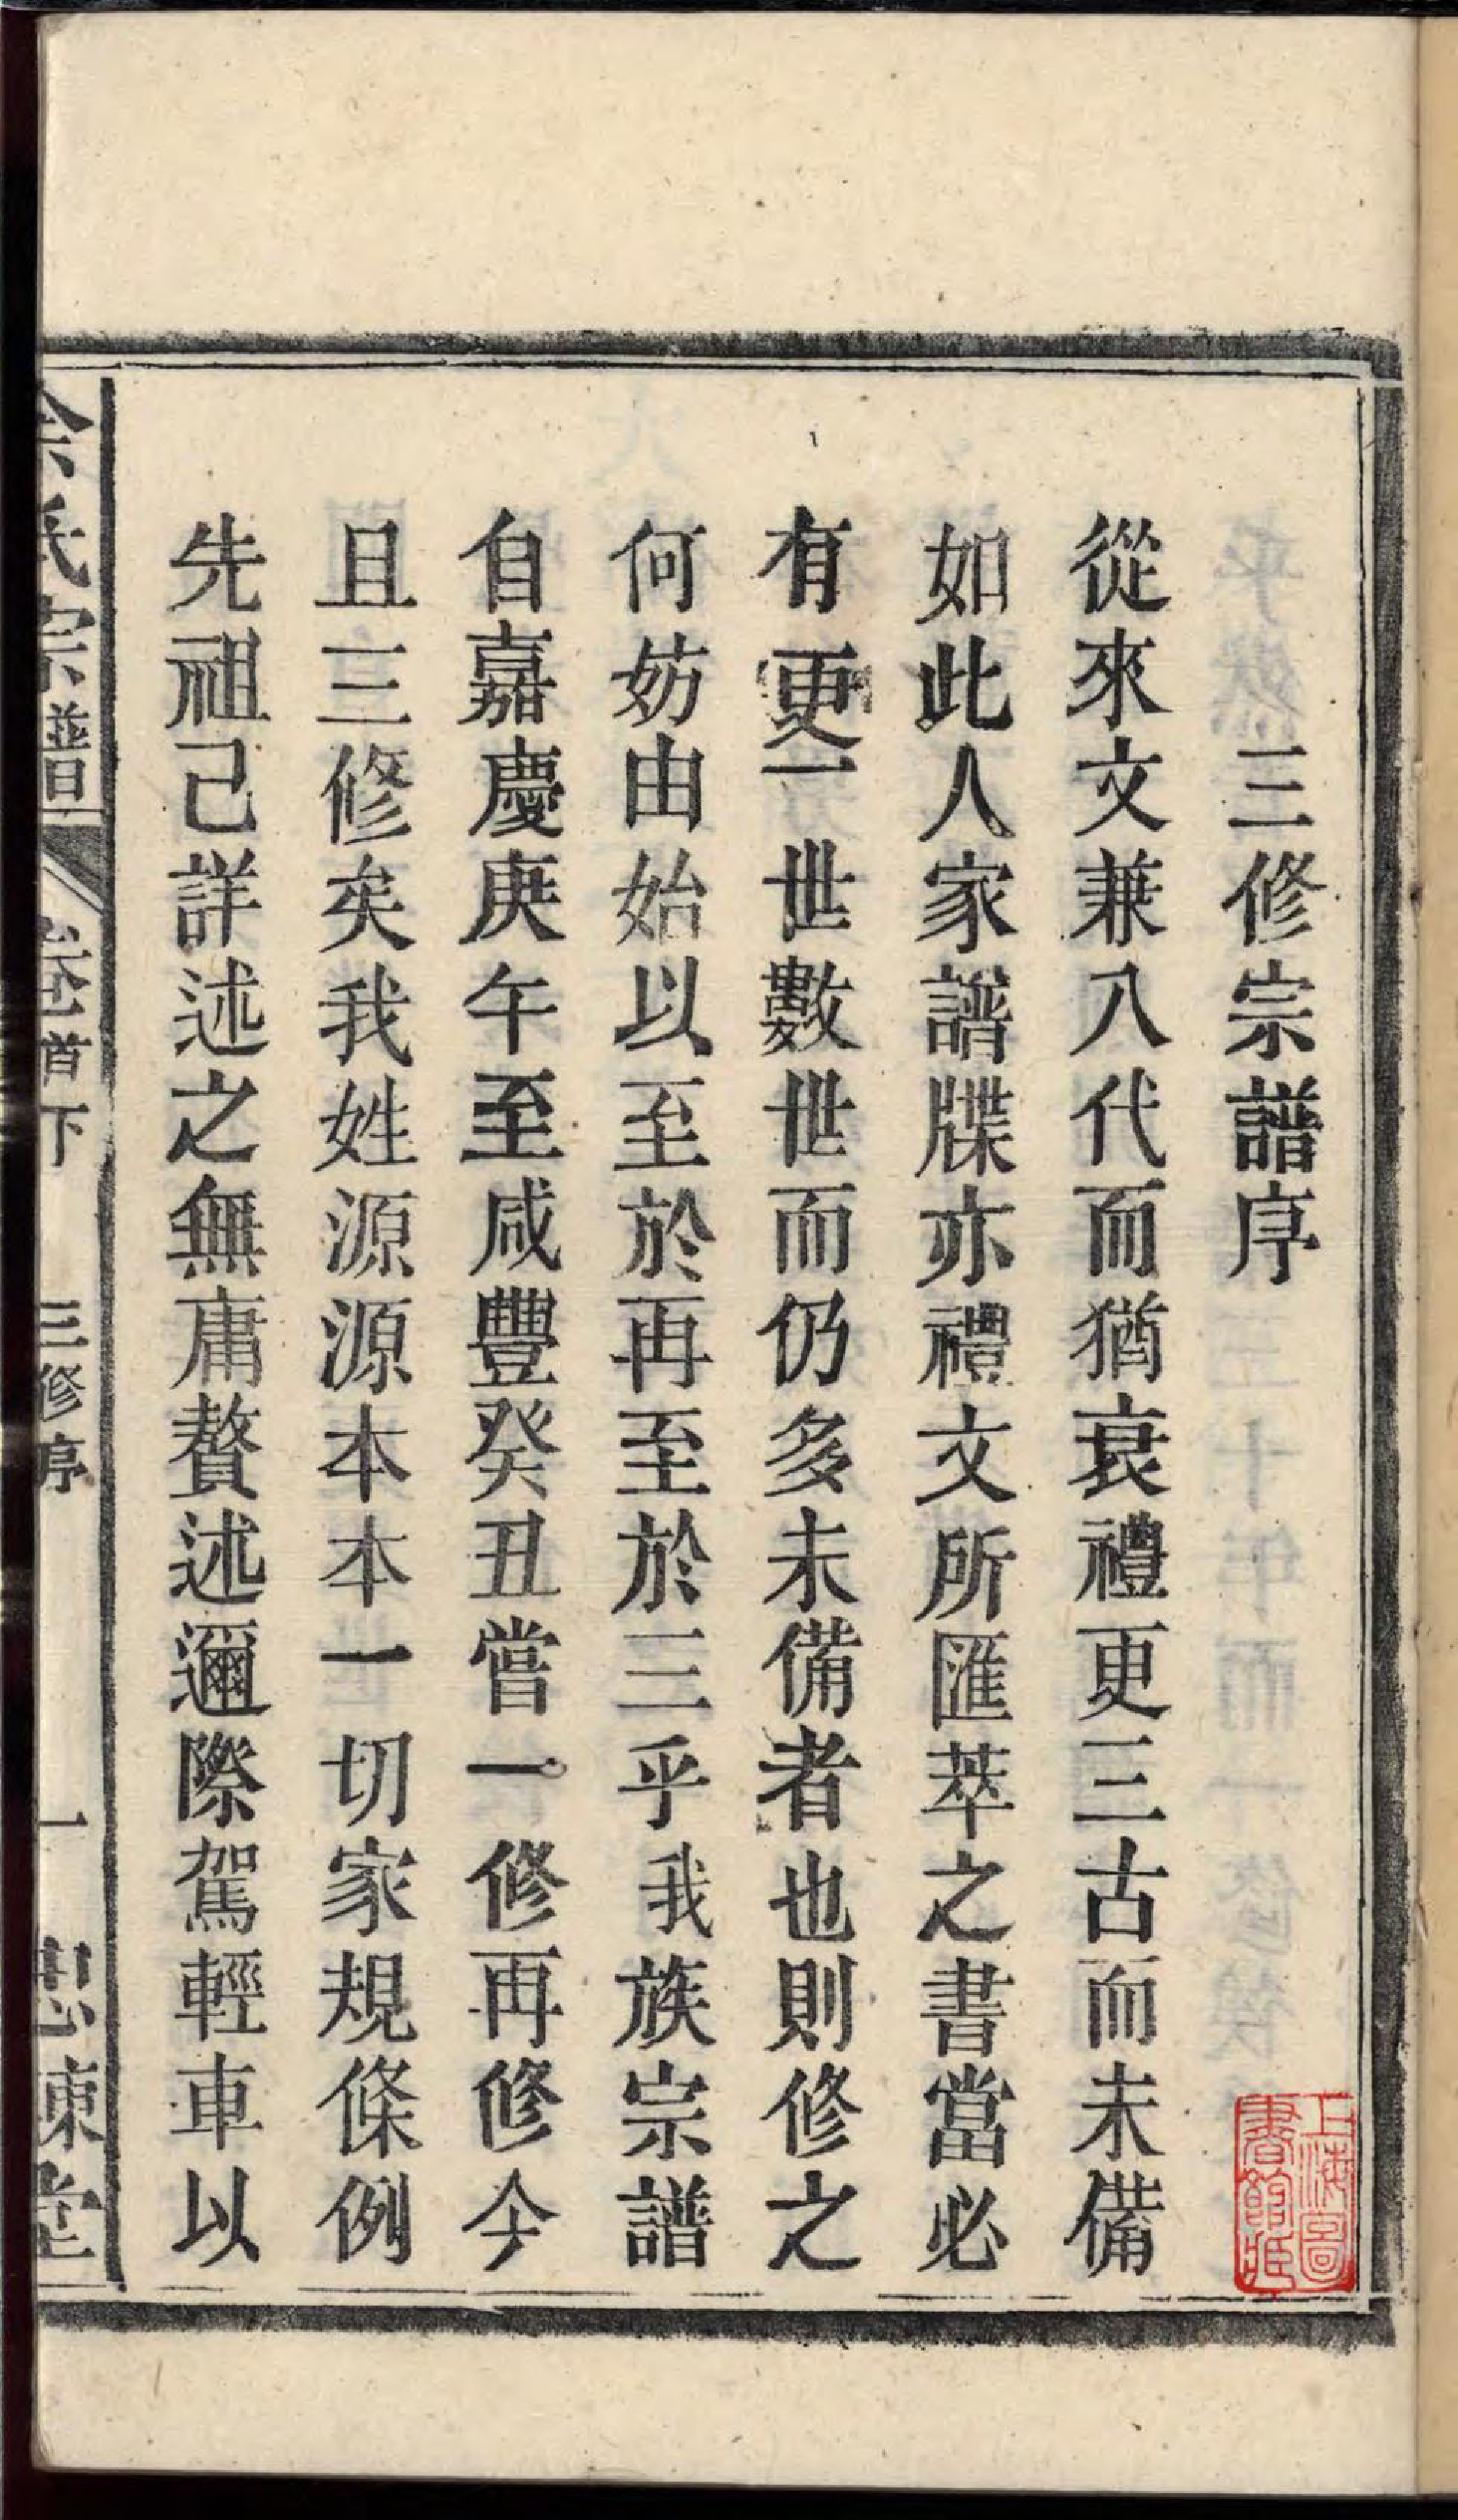 三修宗譜序
從來文兼八代而猶衰禮更三古而未備
如此人家譜牒亦禮文所匯萃之書當必
有更一世數世而仍多未備者也則修之
何妨由始以至於再至於三乎我族宗譜
自嘉慶庚午至咸豐癸丑嘗一修再修今
且三修矣我姓源源本本一切家規條例
先祖己詳述之無庸贅述邇際駕輕車以
氏宗譜
卷首下
三修序
一
堂
上海圖書館藏